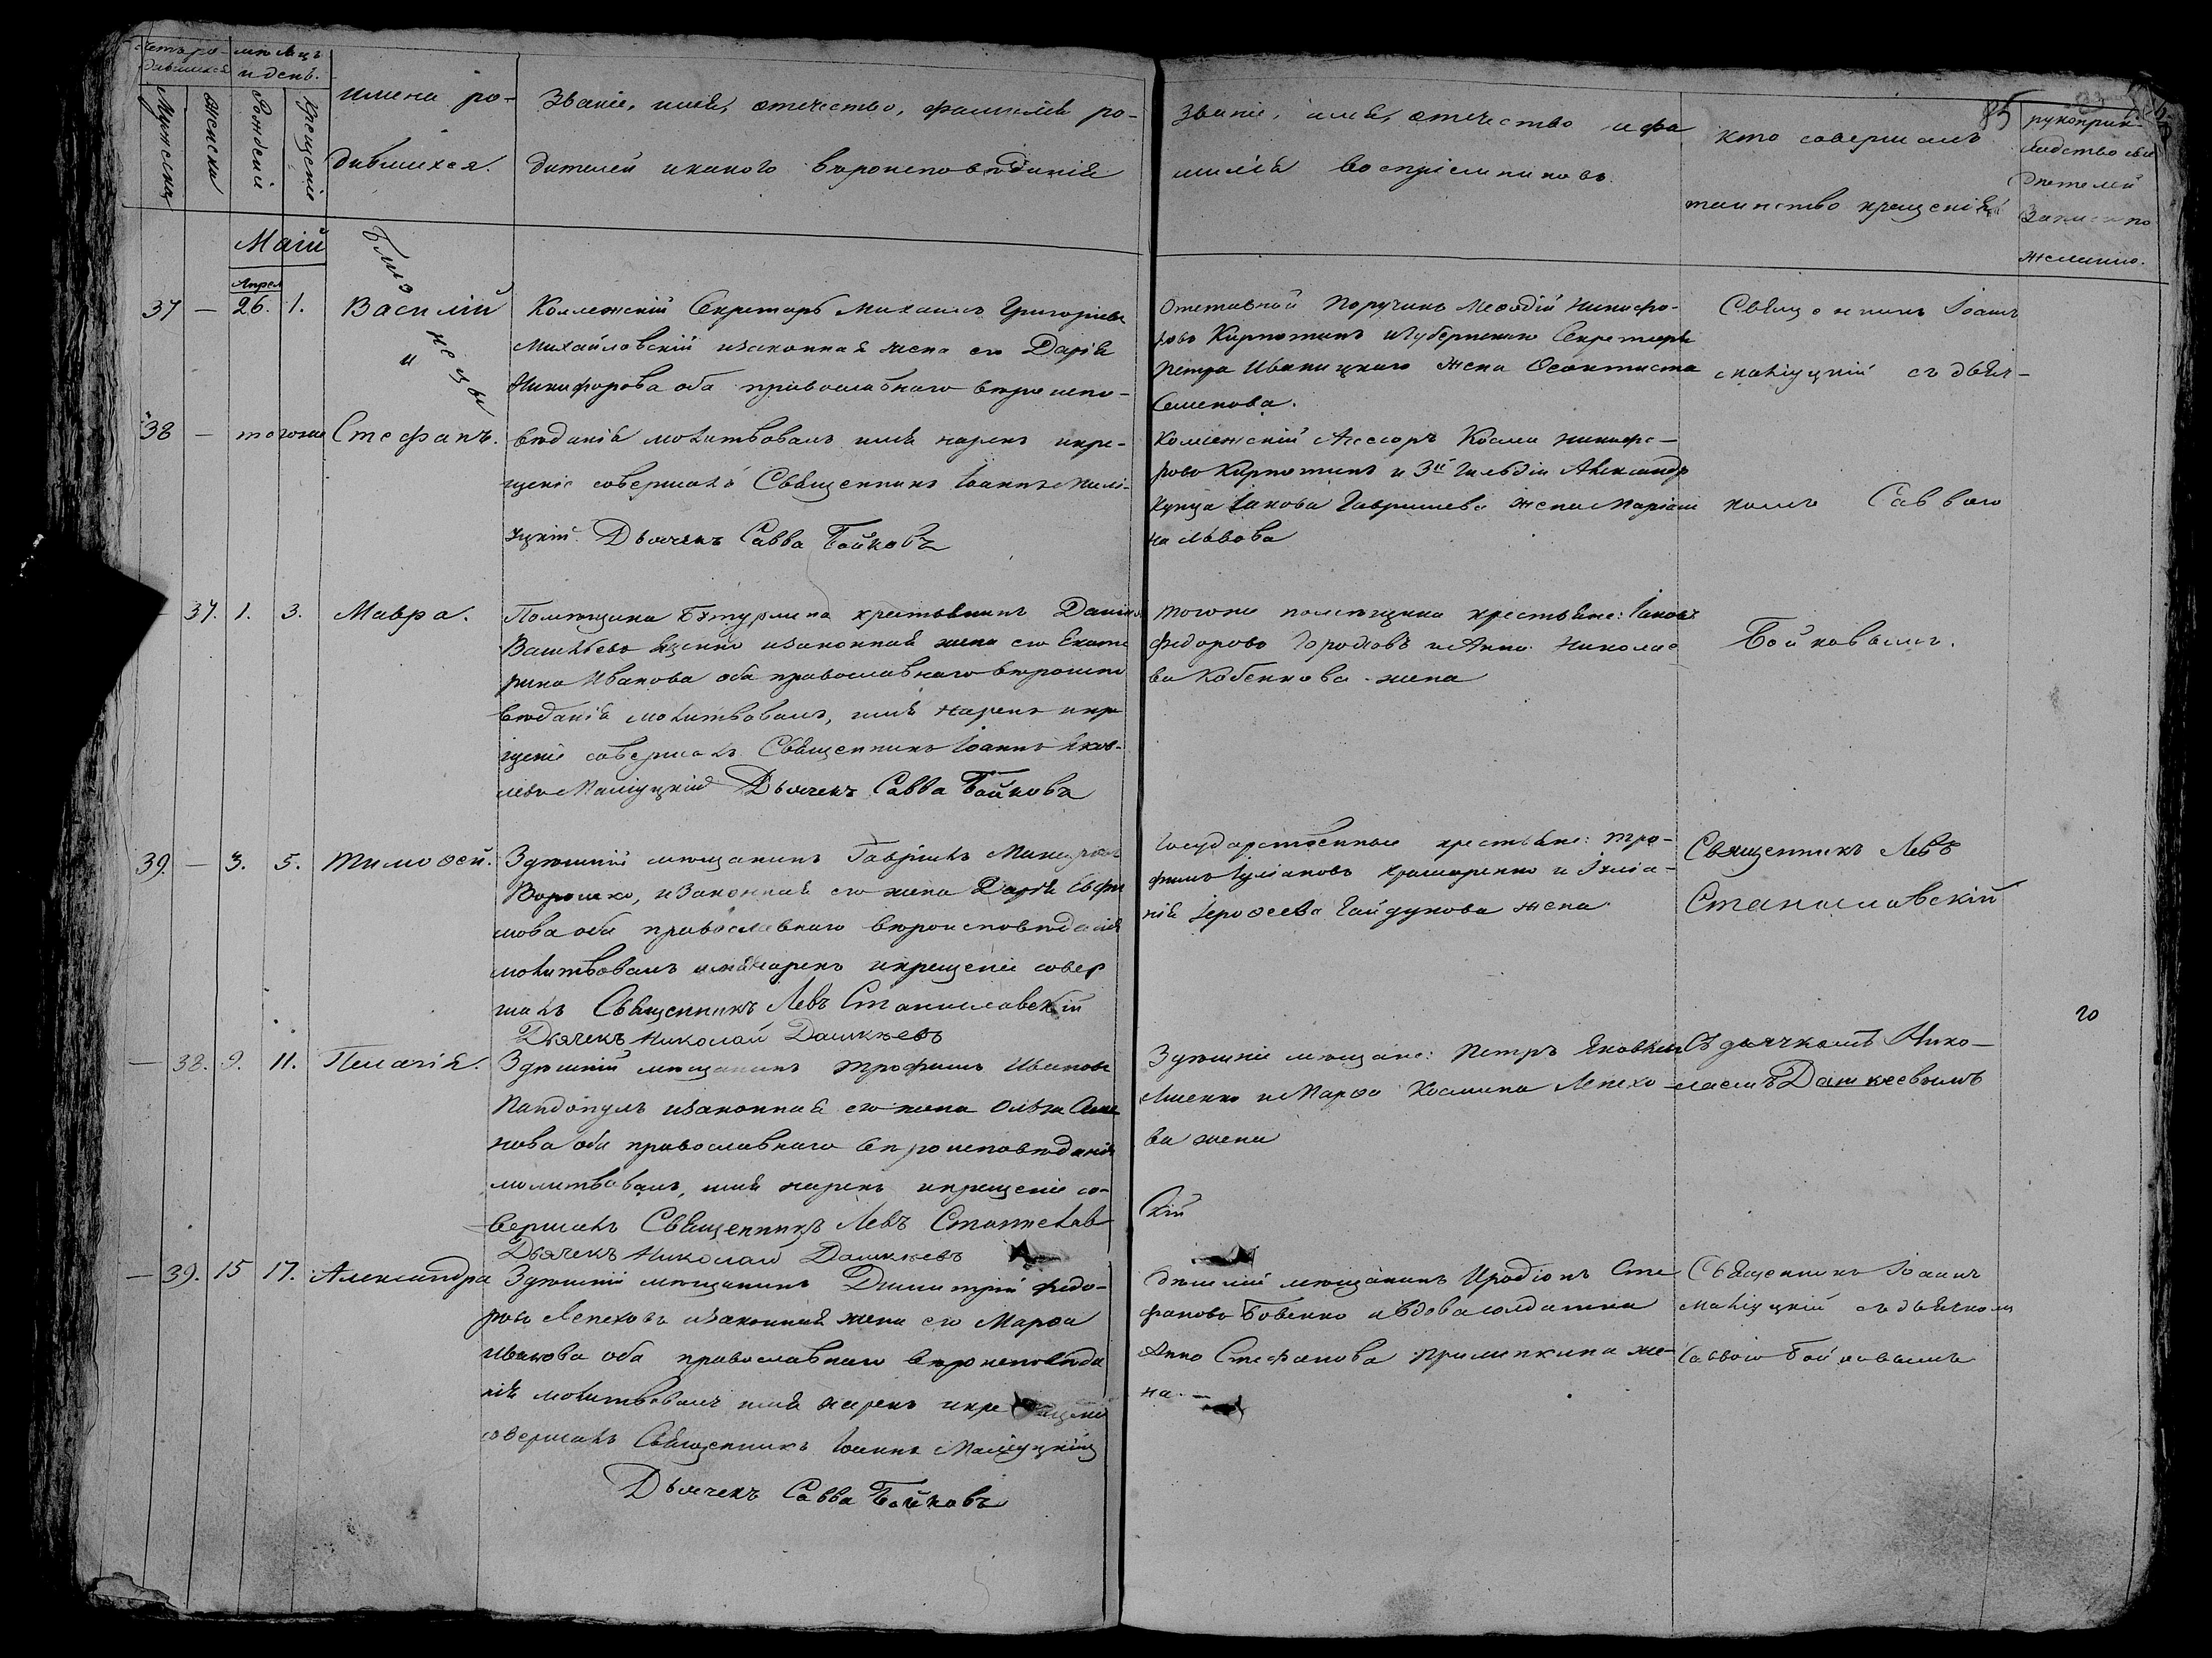 счетъ ро-
дившихся
мѣсяцъ
и день.
Мужеска
Женска
Рожденiе
Крещенiе
имена ро-
дившихся.
Званiе, имя, отечество, фамилiя ро-
дителей и какого вѣроисповѣданiя
Званiе, имя, отечество и фа
милiя воспрiемниковъ.
кто совершалъ
таинство крещенiя
85
рукоприк-
ладство сви
дѣтелей
записи по
желанiю.
Маiй
Апрел
37 — 26. 1. Василiй
и
Близнецы
Коллежскiй Секретарь Михаилъ Григорiевъ
Михайловскiй и законная жена его Дарiя
Никифорова оба православнаго вѣроиспо-
38 — тогоже Стефанъ.
вѣданiя молитвовалъ имя нарекъ и кре-
щенiе совершалъ Священникъ Iоаннъ
Дьячекъ Савва Бойковъ
Отставной Поручикъ Меѳодiй Никифо-
ровъ Кирпотинъ и Губернскаго Секретаря
Петра Иваницкаго жена Ѳеоктиста
Семенова.
Коллежскiй Асессоръ Косма Никифо-
ровъ Кирпотинъ и 3й Гильдiи
Купца Iакова Гавришева жена Марiа
на Львова
Священникъ Iоаннъ
съ дьяч-
комъ Саввою
Бойковымъ.
37. 1. 3. Мавра.
Помѣщика Бутурлина крестьянинъ Данiилъ
Васильевъ Яценко и законная жена его Екате
рина Иванова оба православнаго вѣроиспо
вѣданiя молитвовалъ, имя нарекъ и кре
щенiе совершалъ Священникъ Iоаннъ Яков-
левъ Дьячекъ Савва Бойковъ
Тогоже помѣщика крестьяне: Iаковъ
Федоровъ Городовъ и Анна Николае
ва Кобенкова жена
39. — 3. 5. Тимоѳей.
Здѣшнiй мѣщанинъ Гаврiилъ
Ворошко, и законная его жена Дарiя Евфи
мова оба православнаго вѣроисповѣданiя
молитвовалъ имя нарекъ и крещенiе совер
шалъ Священникъ Левъ Станиславскiй
Дьячекъ Николай Дашкѣевъ
Государственные крестьяне: Тро-
фимъ и Iулiа-
нiя Iероѳеева Гайдукова жена
Священникъ Левъ
Станиславскiй
20
— 38. 9. 11. Пелагiя.
Здѣшнiй мѣщанинъ Трофимъ Ивановъ
Пандопулъ и законная его жена Ольга Семе
нова оба православнаго вѣроисповѣданiя
молитвовалъ, имя нарекъ и крещенiе со-
вершалъ Священникъ Левъ Станислав
Дьячекъ Николай Дашкѣевъ
Здѣшнiе мѣщане: Петръ Яковлевъ
Лиенко и Марѳа Космина Лепехо-
ва жена
скiй
Съ дьячкомъ Нико-
лаемъ Дашкеевымъ
— 39. 15 17. Александра
Здѣшнiй мѣщанинъ Димитрiй Федо-
ровъ Лепеховъ и законная жена его Марѳа
Иванова оба православнаго вѣроисповѣда
нiя молитвовалъ имя нарекъ и крещенiе
совершалъ Священникъ Iоаннъ
Дьячекъ Савва Бойковъ
Здѣшнiй мѣщанинъ Иродiонъ Сте
фановъ Бовенко и вдова солдатка
Анна Стефанова Прилипкина же-
на. —
Священникъ Iоаннъ
съ дьячкомъ
Саввою Бойковымъ